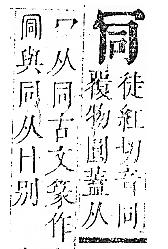 徒紅切音同
覆物圓蓋从
冖从同古文篆作
同與同从别